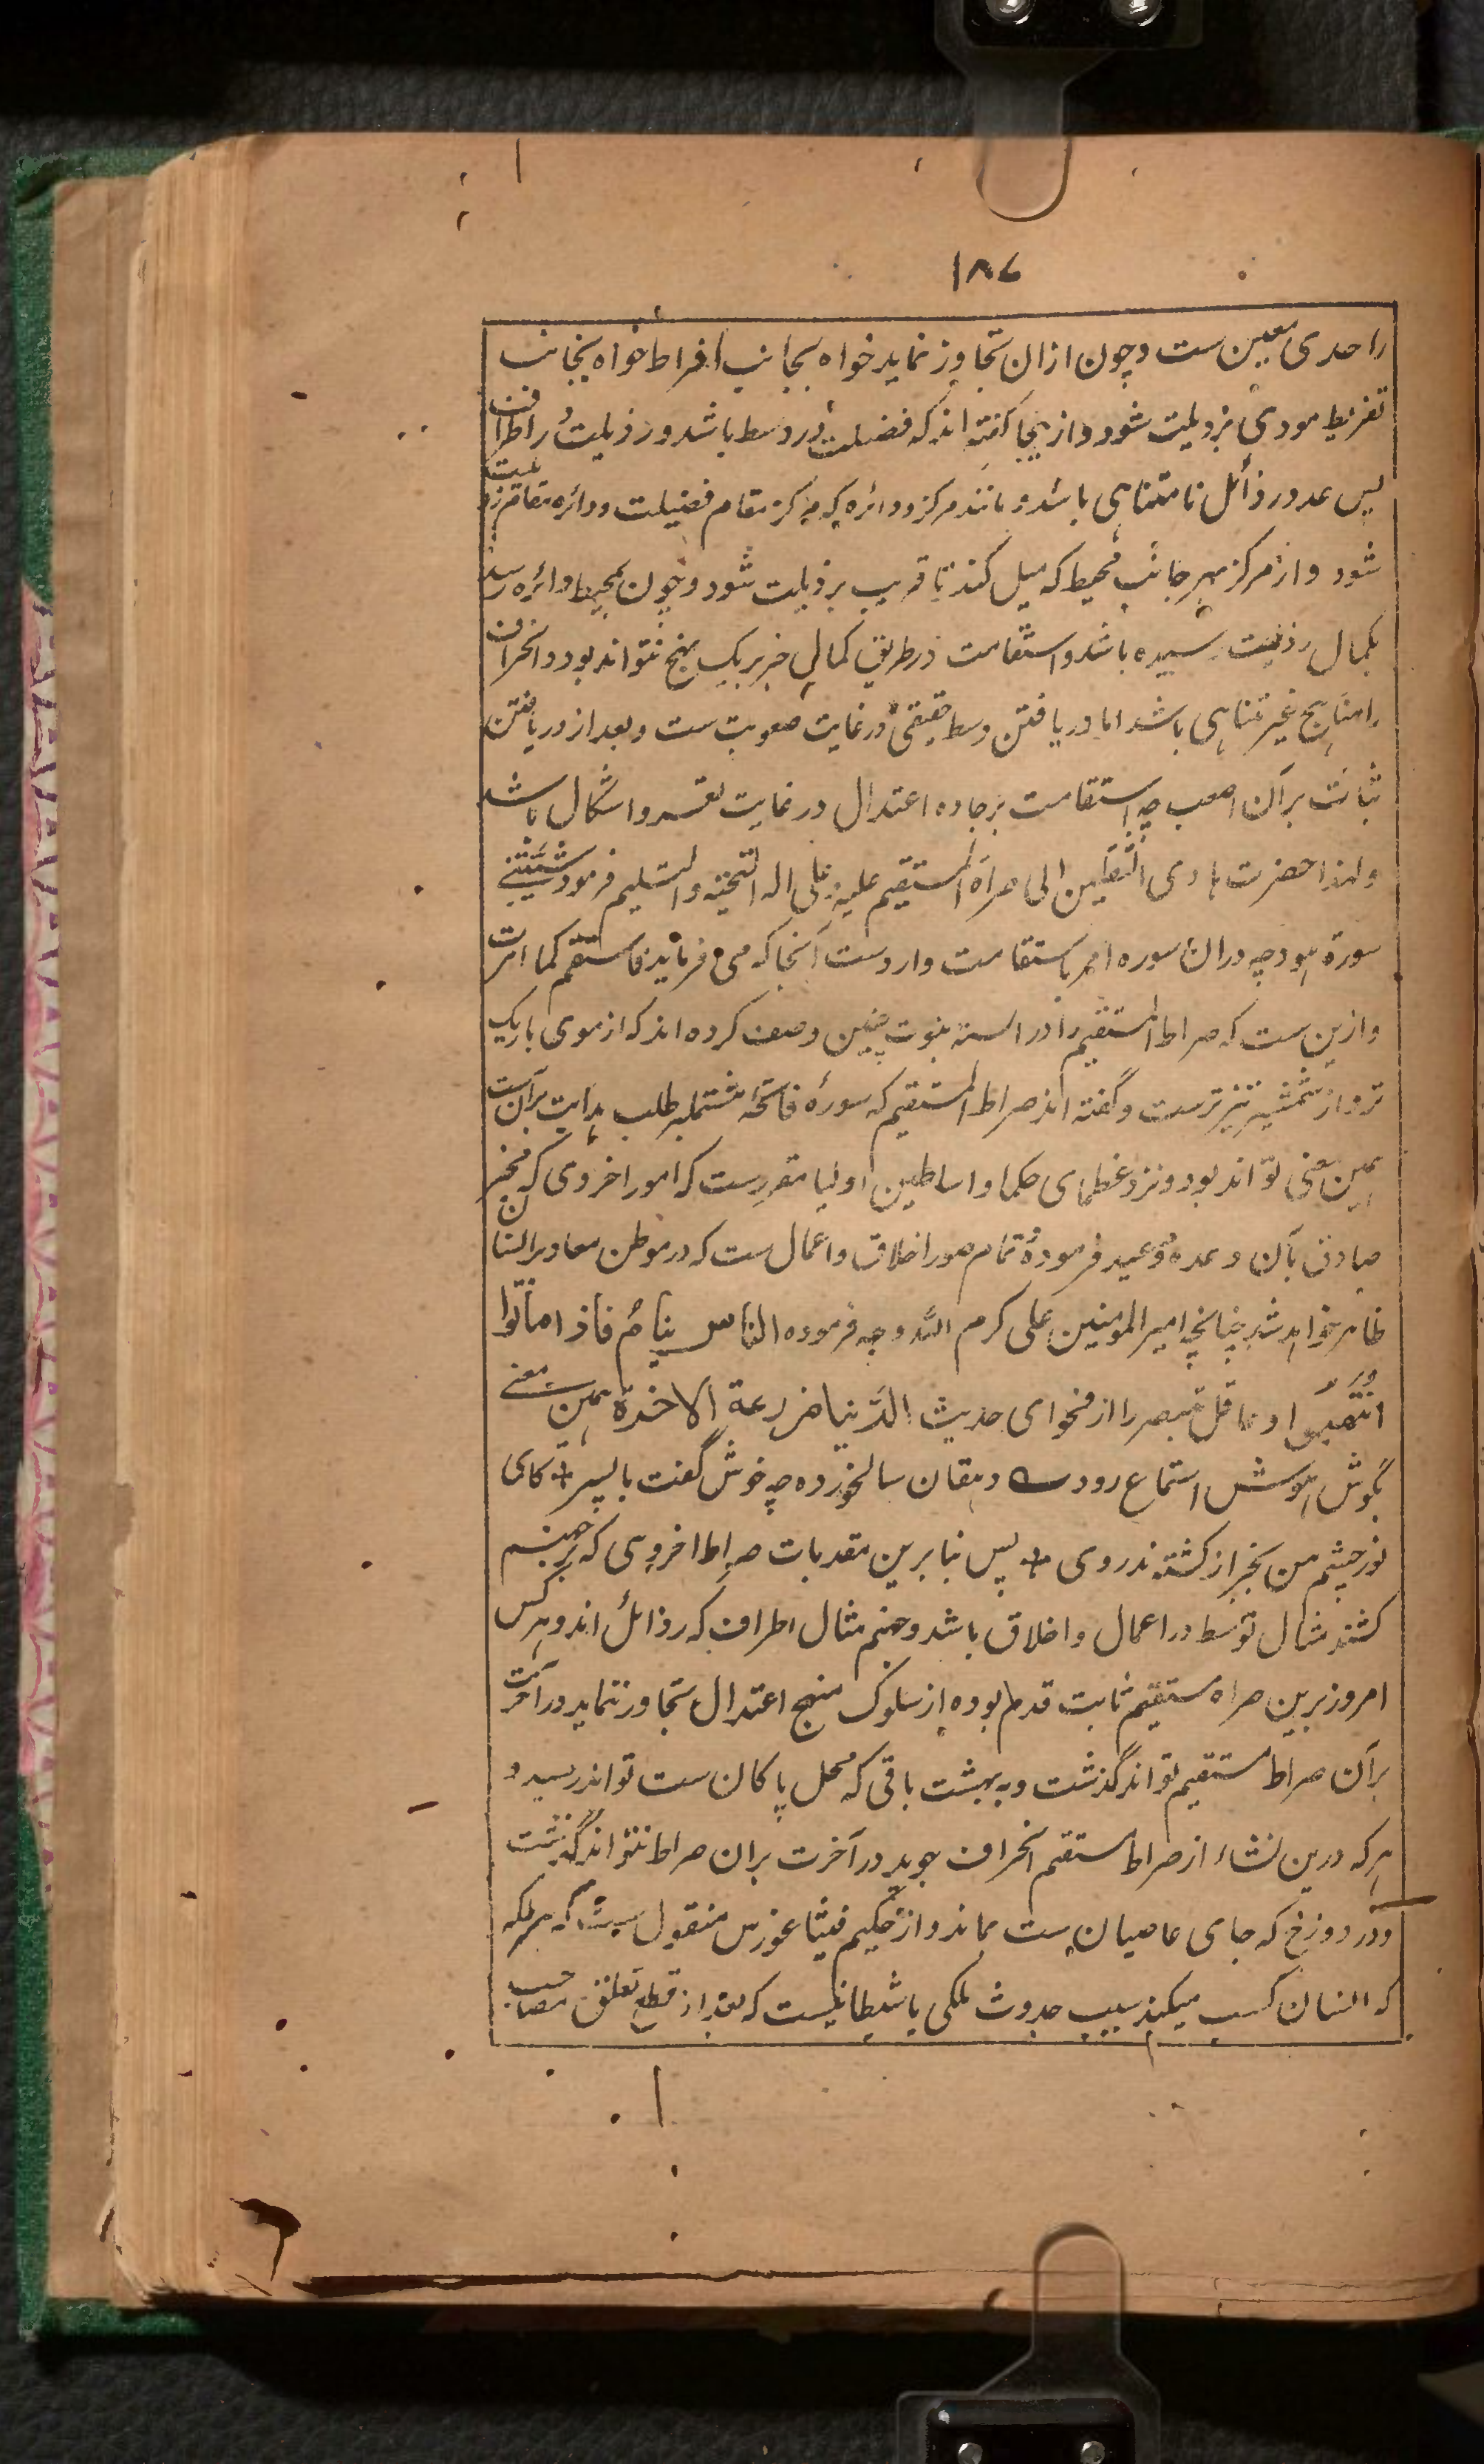 ۱۸۷
را حدی معین ست و چون ازان تجاوز نماید خواه بجانب افراط خواه بجانب
تفریط مودی برذیلت شود و ازینجا گفته اند که فضیلت در وسط باشد و رذیلت در اطراف
پس عدد رذائل نامتناهی باشد و مانند مرکز و دائره که مرکز بمقام فضیلت و دائره بمقام رذیلت
شود و از مرکز بهر جانب محیط که میل کند تا قریب برذیلت شود و چون بمحیط دائره رسد
بکمال رذیلت رسیده باشد و استقامت در طریق کمالی جز بر یک نهج نتواند بود و انحراف
را مناہج غیر متناہی باشد اما دریافتن وسط حقیقی در غایت صعوبت ست و بعد از دریافتن
ثبات بر آن اصعب چه استقامت بر جاده اعتدال در غایت تعسر و اشکال باشد
و لهذا حضرت ہادی الثقلین الی صراط المستقیم علیه و علی اله التحیته والتسلیم فرمود شیبتنی
سورة ہود چه دران سوره امر باستقامت وارد ست آنجا که می فرماید فاستقم کما امرت
و ازین ست که صراط المستقیم را در السنه نبوت چنین وصف کرده اند که از موی باریک
تر و از شمشیر تیز ترست و گفته اند صراط المستقیم که سورۀ فاتحه مشتمل بر طلب ہدایت بر آن ست
ہمین معنی تواند بود و نزد عظمای حکما و اساطین اولیا مقررست که امور اخروی که مخبر
صادق بآن وعده و وعید فرمودۀ تمام صور اخلاق و اعمال ست که در موطن معاد بر انسان
ظاہر خواہد شد چنانچه امیر المومنین علی کرم الله وجهه فرموده الناس نیام فاذا ماتوا
انتبهوا و عاقل متبصر را از فحوای حدیث الدنیا مزرعة الاخرة ہمین معنے
بگوش ہوش استماع رود ے دہقان سالخورده چه خوش گفت با پسر + کای
نور چشم من بجز از کشته ندروی + پس بنا برین مقدمات صراط اخروی که بر جہنم
کشند مثال توسط در اعمال و اخلاق باشد و جہنم مثال اطراف که رذائل اند و ہرکس
امروز برین صراط مستقیم ثابت قدم بوده از سلوک منہج اعتدال تجاوز ننماید در آخرت
بر آن صراط مستقیم تواند گذشت و به بہشت باقی که محل پاکان ست تواند رسید و
ہرکه درین نشاء از صراط مستقیم انحراف جوید در آخرت بران صراط نتواند گذشت
و در دوزخ که جای عاصیان ست بماند و از حکیم فیثاغورس منقول ست که ہر ملکه
که انسان کسب میکند سبب حدوث ملکی یا شیطانیست که بعد از قطع تعلق مصاحب